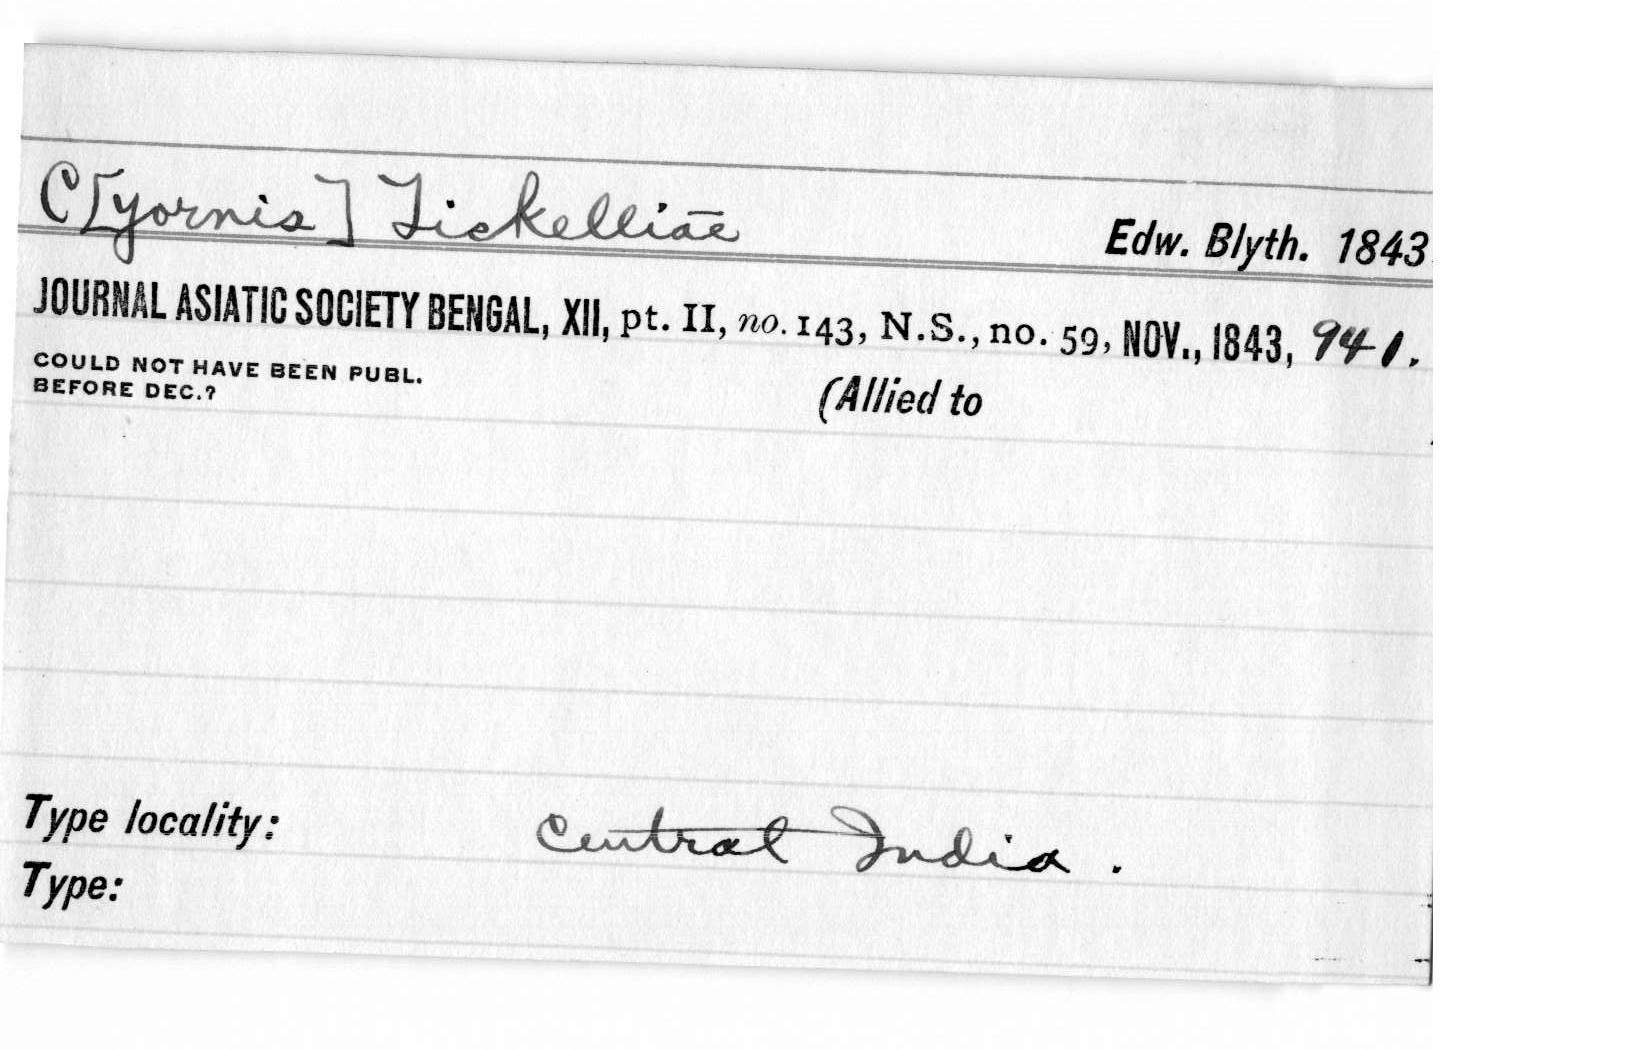 C[yornis] Tickelliæ Edw. Blyth. 1843
JOURNAL ASIATIC SOCIETY BENGAL, XII, pt. II, no. 143, N.S., no. 59, NOV., 1843, 941.
COULD NOT HAVE BEEN PUBL.
BEFORE DEC.?
(Allied to
Type locality: Central India.
Type: